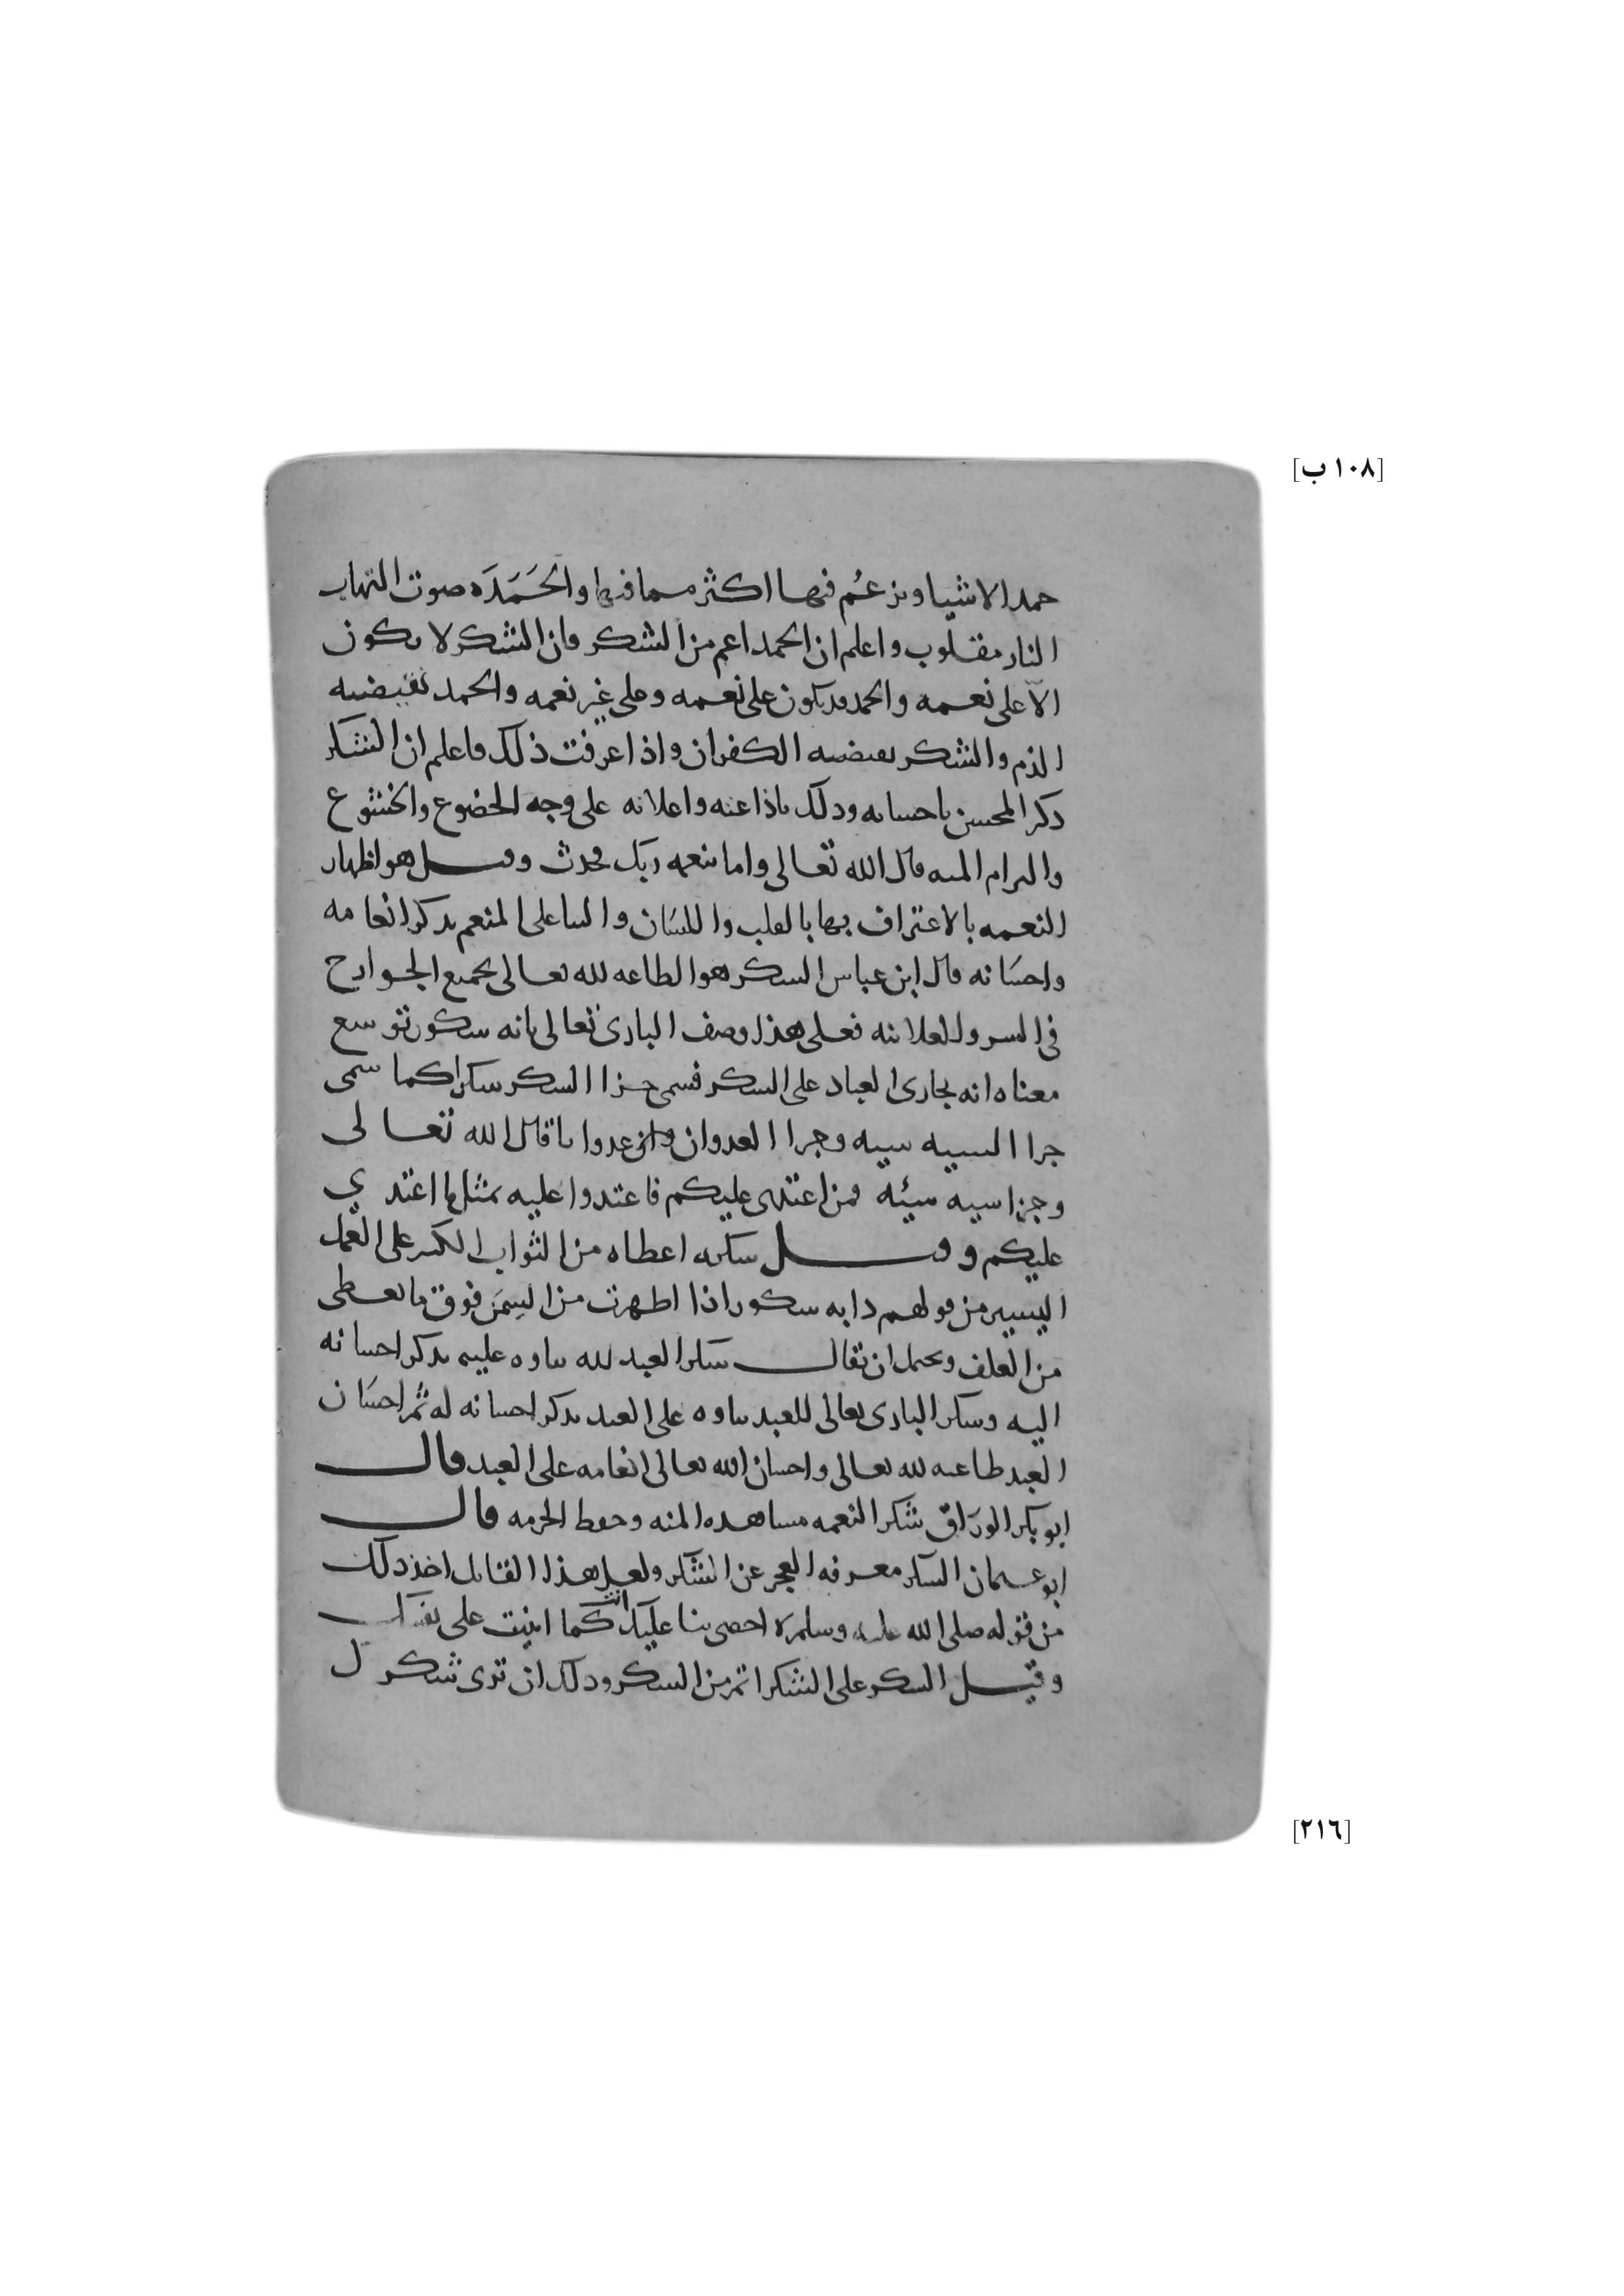 [١٠٨ ب]
حمد الاشيا ويزعم فيها اكثر مما فيها والحَمَدَه صوت التهاب
النار مقلوب واعلم ان الحمد اعم من الشكر فان الشكر لا يكون
الا على نعمه والحمد قد يكون على نعمه وعلى غير نعمه والحمد نقيضه
الذم والشكر نقيضه الكفران واذا عرفت ذلك فاعلم ان الشكر
ذكر المحسن باحسانه وذلك باذاعته واعلانه على وجه الخضوع والخشوع
والتزام المنه قال الله تعالى واما بنعمه ربك فحدث وقيل هو اظهار
النعمه بالاعتراف بها بالقلب واللسان والثنا على المنعم بذكر انعامه
واحسانه قال ابن عباس الشكر هو الطاعه لله تعالى بجميع الجوارح
في السر والعلانيه فعلى هذا وصف البارى تعالى بانه شكور توسع
معناه انه يجازى العباد على الشكر فسمى جزا الشكر شكرا كما سمى
جزا السيه سيه وجزا العدوان عدوانا قال الله تعالى
وجزا سيه سيئه فمن اعتدى عليكم فاعتدوا عليه بمثل ما اعتدي
عليكم وقيل شكره اعطاه من الثواب الكثير على العمل
اليسير من قولهم دابه شكور اذا اظهرت من السِمَن فوق ما تعطى
من العلف ويحتمل ان يقال شكر العبد لله ثناوه عليه بذكر احسانه
اليه وشكر البارى تعالى للعبد ثناوه على العبد بذكر احسانه له ثم احسان
العبد طاعته لله تعالى واحسان الله تعالى انعامه على العبد قال
ابو بكر الوراق شكر النعمه مشاهده المنه وحفظ الحرمه قال
ابو عثمان الشكر معرفه العجز عن الشكر ولعل هذا القائل اخذ ذلك
من قوله صلى الله عليه وسلم لا احصى ثنا عليك انت كما اثنيت على نفسك
وقيل الشكر على الشكر اتم من الشكر وذلك ان ترى شكرك
[٢١٦]